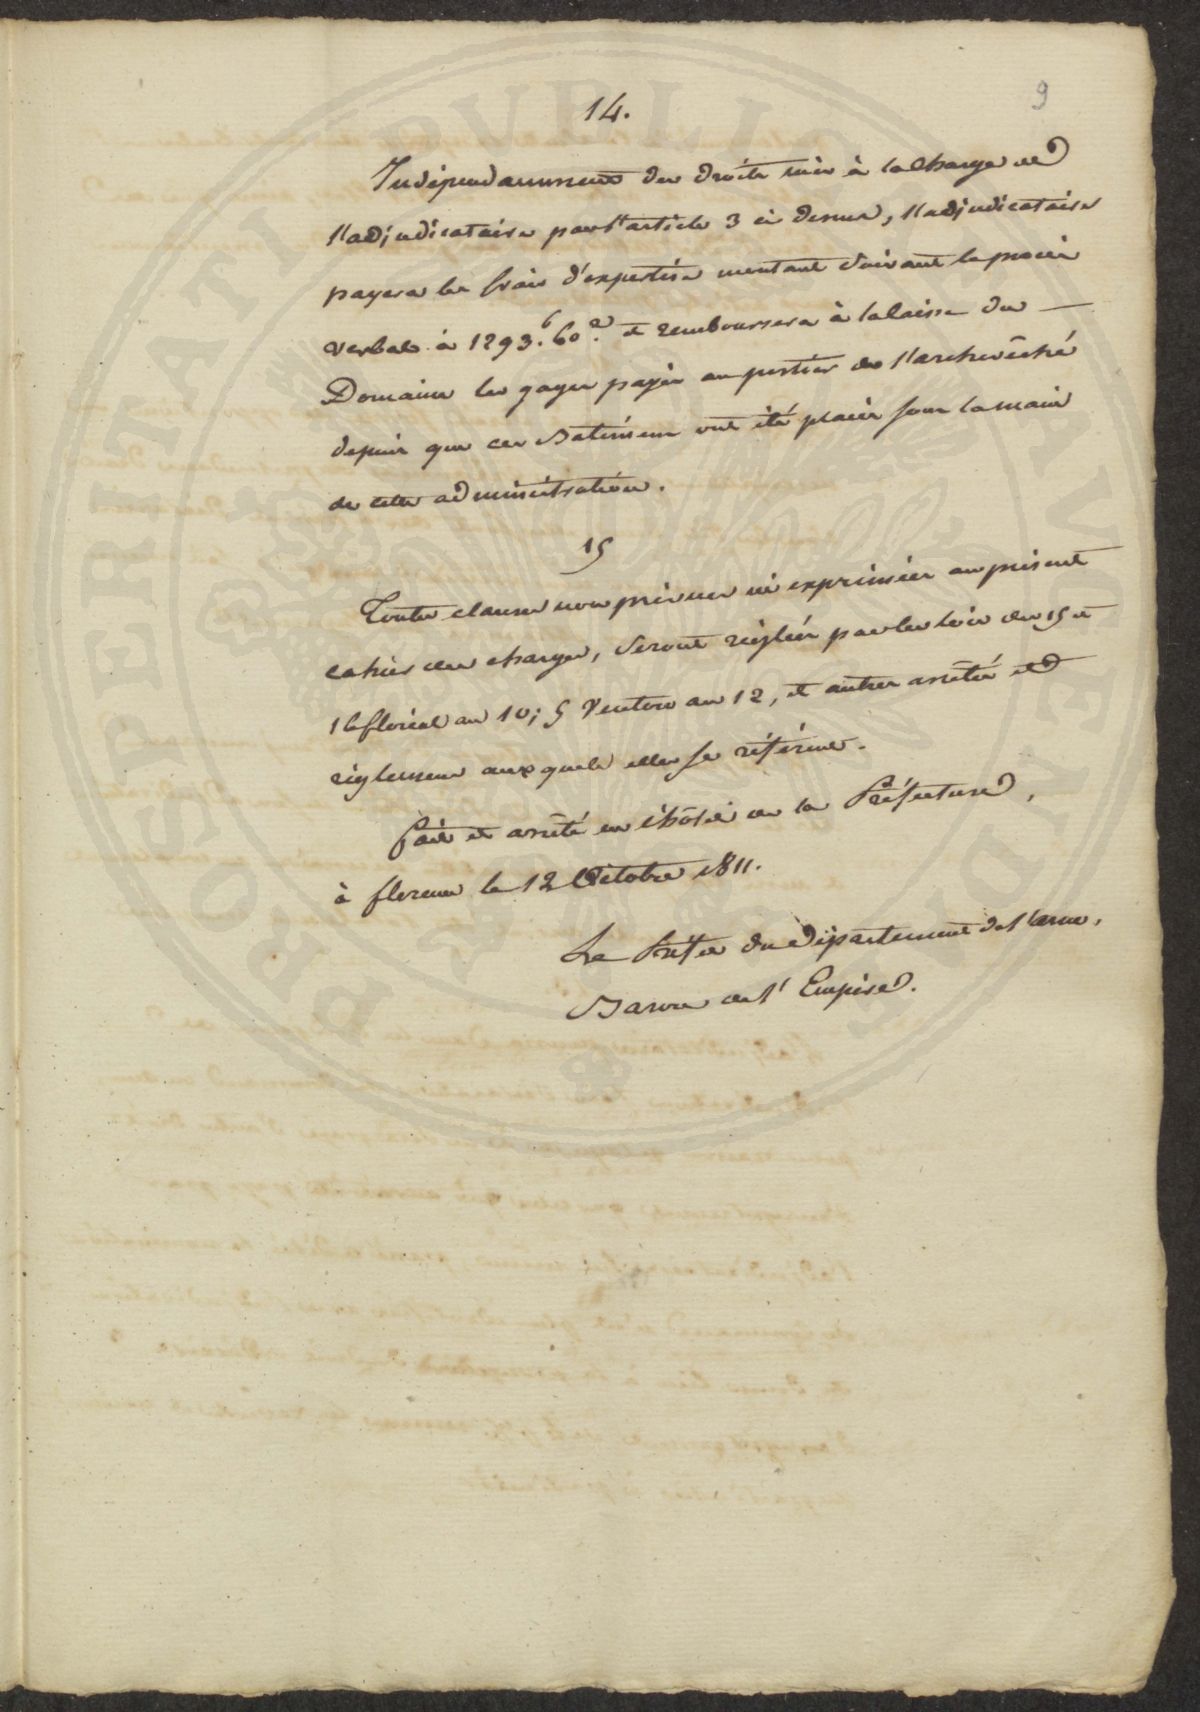 9
14.
Indépendamment des droits mis à la charge de
l'adjudicataire par l'article 3 ci dessus, l'adjudicataire
payera les frais d'expertise montant suivant le procès
verbal à 1293.f 60.c et remboursera à la Caisse du
Domaine les gages payés au portier de l'archevêché
depuis que ces Batimens ont été placés sous la main
de cette administration.
15
Toutes clauses non prévues ni exprimées au présent
cahier des charges, seront réglées par les lois des 15 et
16 floréal an 10; 5 Ventose an 12, et autres arrêtés et
règlemens auxquels elles se réfèrent.
Fait et arrêté en l'hôtel de la Préfecture,
à florence le 12 Octobre 1811.
Le Préfet du Département de l'arno,
Baron de l'Empire.
PROSPERITATI PVBLICAE